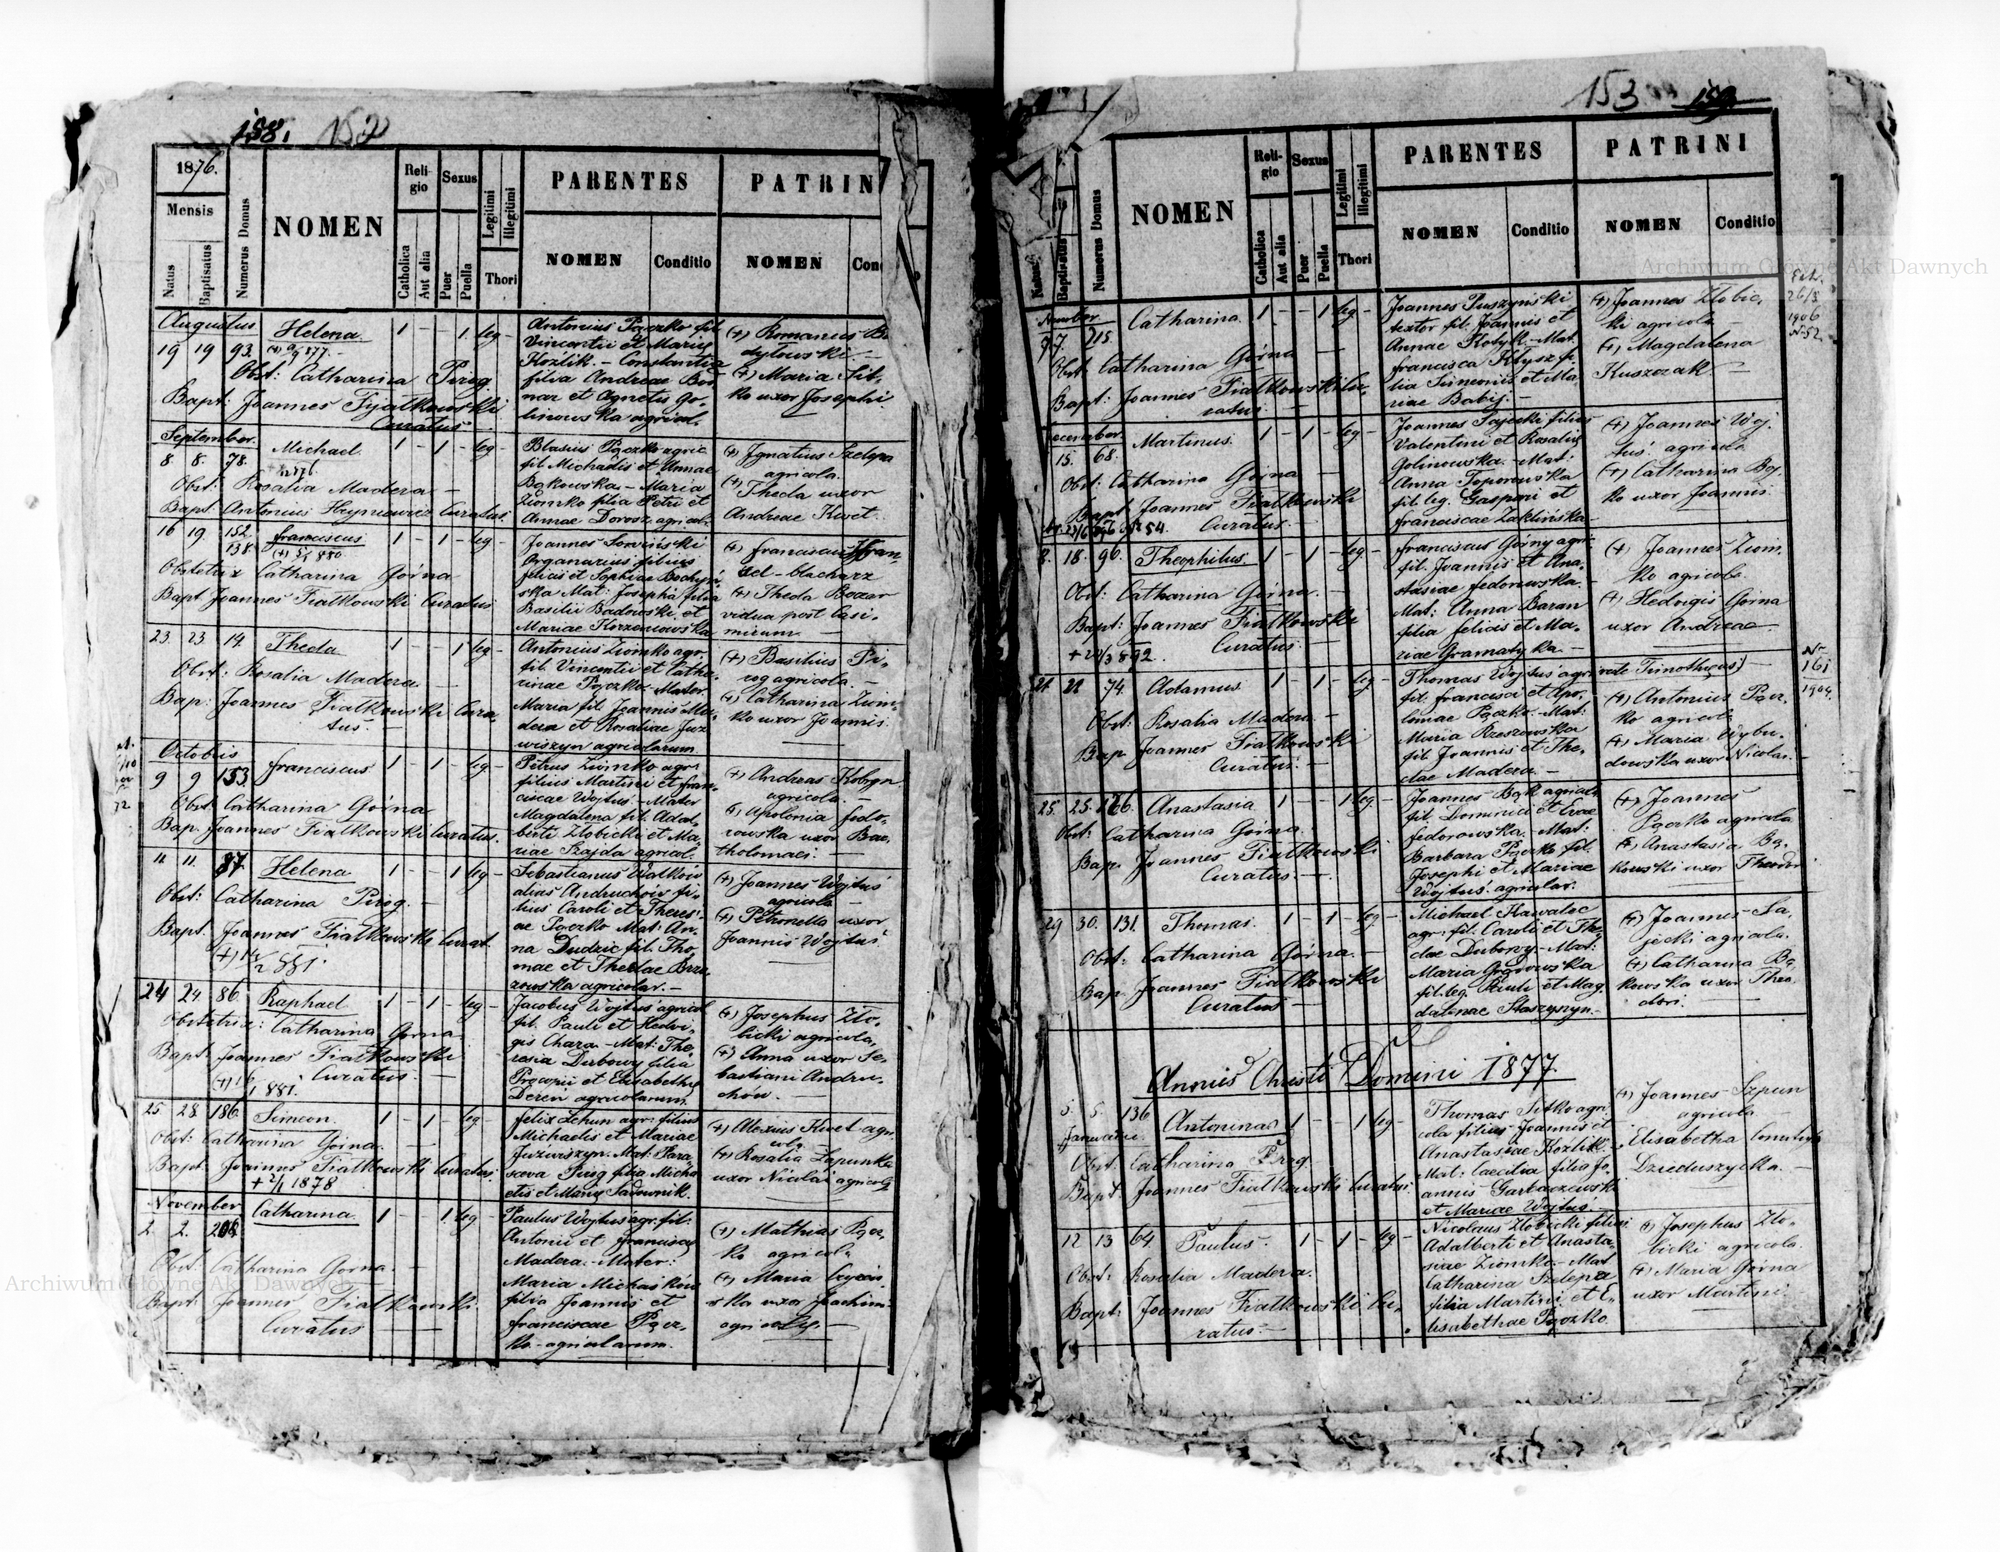 158. 152
1876.
Mensis
Natus
Baptisatus
Numerus Domus
NOMEN
Religio
Catholica
Aut alia
Sexus
Puer
Puella
Legitimi
Illegitimi
Thori
PARENTES
NOMEN
Conditio
PATRIN
NOMEN
Con
Augustus
19 19 93. Helena 1 - - 1 leg -
Obst: Catharina Pirog
Bapt: Joannes Fijatkowski
Curatus
Antonius Pączko fil.
Vincentii et Mariae
Kozlik - Constantia
filia Andreae Bed
nar et Agnetis Go-
linowska agricol.
(+) Romanus
dytowski. -
(+) Maria Sit-
ko uxor Josephi
September.
8 8. 78. Michael 1 - 1 - leg
Obst: Rosalia Madera -
Bapt: Antonius Hryniewicz Curatus
Blasius Pączko agric
fil. Michaelis et Annae
Bąkowska - Maria
Ziomko filia Petri et
Annae Dorosz agricol.
(+) Ignatius Szelepa
agricola.
(+) Thecla uxor
Andreae Kwet.
16 19 152. 138. Franciscus 1 - 1 - leg -
Obstetrix Catharina Górna
Bapt Joannes Fiatkowski Curatus
Joannes
Organarius filius
Felicis et Sophiae
ska Mat: Josepha filia
Basilii Badowski et
Mariae Korzeniowska
(+) Franciscus
del - blacharz
(+) Thecla Bocar
vidua post Casi-
mirum -
23 23 14. Thecla 1 - - 1 leg -
Obst: Rosalia Madera -
Bap: Joannes Fiatkowski Cura-
tus. -
Antonius Ziomko agr.
fil. Vincentii et Catha-
rinae Pączko - Mater.
Maria fil. Joannis Ma-
dera et Rosaliae Juz
wiszyn agricolarum
(+) Basilius Pi-
rog agricola. -
(+) Catharina Ziom-
ko uxor Joannis.
Octobris
9 9 153. Franciscus 1 - 1 - leg -
Obst: Catharina Górna
Bap. Joannes Fiatkowski Curatus.
Petrus Ziomko agr.
filius Martini et Fran-
ciscae Wojtus - Mater
Magdalena fil. Adal-
berti Złobicki et Ma
riae Szajda agricol.
(+) Andreas Kobryn
agricola. -
(+) Apolonia Fedo-
rowska uxor Bar-
tholomaei. -
11 11. 87 Helena 1 - - 1 leg -
Obst: Catharina Pirog. -
Bapt. Joannes Fiatkowski Curat.
881.
Sebastianus Watkow
alias Andruchow fi-
lius Caroli et Theres-
ae Pączko Mat: An-
na Dudzic fil: Tho-
mae et Theclae Brzo
zowska agricolar. -
(+) Joannes Wojtus
agricola -
(+) Petronella uxor
Joannis Wojtus
24 24. 86. Raphael 1 - 1 - leg -
Obstetrix: Catharina Górna
Bapt: Joannes Fiatkowski
Curatus. -
881.
Jacobus Wojtus agricol
fil. Pauli et Hedvi-
gis Chara - Mat: The-
resia Dubowy filia
Procopii et Elisabethae
Deren agricolarum
(+) Josephus Zło-
bicki agricola,
(+) Anna uxor Se-
bastiani Andru-
chów. -
25 28. 186. Simeon. 1 - 1 - leg -
Obst: Catharina Górna. -
Bapt: Joannes Fiatkowski Curatus
1878
Felix Zehun agr: filius
Michaelis et Mariae
Juzwiszyn. Mat: Para
sceva Pirog filia Micha
elis et Mariae Sadownik.
(+) Alexius Kwet agri
cola
(+) Rosalia Lepunka
uxor Nicolai agricola
November
2. 2. Catharina. 1 - - 1 leg -
Obst: Catharina Górna. -
Bapt: Joannes Fiatkowski
Curatus
Paulus Wojtus agr. fil.
Antonii et Franciscae
Madera. - Mater:
Maria Michaikow
filia Joannis et
Franciscae Pącz-
ko - agricolarum.
(+) Mathias Pącz-
ko agricola
(+) Maria
ska uxor Joachim
agricolae. -
153
Natus
Baptisatus
Numerus Domus
NOMEN
Religio
Catholica
Aut alia
Sexus
Puer
Puella
Legitimi
Illegitimi
Thori
PARENTES
NOMEN
Conditio
PATRINI
NOMEN
Conditio
26/3
1906
N-52
November
215. Catharina. 1 - - 1 leg -
Obst: Catharina Górna
Bapt: Joannes Fiatkowski Cu-
ratus
Joannes Puszyński
textor fil. Joannis et
Annae Kotyk - Mat.
Francisca Kłysz fi-
lia Simeonis et Ma-
riae Babij. -
(+) Joannes Złobic-
ki agricola
(+) Magdalena
Kuszczak -
December
15. 68. Martinus. 1 - 1 - leg -
Obst: Catharina Górna -
Bapt Joannes Fiatkowski
Curatus.
Joannes Sajecki filius
Valentini et Rosaliae
Golinowska. - Mat:
Anna Toporowska
fil. leg. Gaspari et
Franciscae Zaklińska -
(+) Joannes Woj-
tus. agricola
(+) Catharina Bą-
ko uxor Joannis.
18. 90. Theophilus. 1 - 1 - leg -
Obst: Catharina Górna. -
Bapt: Joannes Fiatkowski
Curatus.
+ 22/3 892.
Franciscus Górny agri
fil. Joannis et Ana-
stasiae Fedorowska. -
Mat: Anna Baran
filia Felicis et Ma-
riae Gramatyka. -
(+) Joannes Ziom-
ko agricola.
(+) Hedvigis Górna
uxor Andreae -
N-
161
1904.
21. 21 74. Adamus. 1 - 1 - leg -
Obst: Rosalia Madera. -
Bap Joannes Fiatkowski
Curatus. -
Thomas Wojtus agri (recte Timotheus) -
fil. Francisci et Apo-
loniae Pączko - Mat:
Maria Rzeszowska
fil. Joannis et The-
clae Madera. -
(+) Antonius Pącz-
ko agricola
(+) Maria Cybu-
dowska uxor Nicolai. -
25. 25. 126. Anastasia 1 - - 1 leg -
Obst: Catharina Górna.
Bap. Joannes Fiatkowski
Curatus. -
Joannes Bąk agricola
fil. Dominici et Evae
Fedorowska. - Mat:
Barbara Pączko fil.
Josephi et Mariae
Wojtus. agricolar.
(+) Joannes
Pączko agricola
(+) Anastasia Bą-
kowski uxor Theodori
29 30. 131. Thomas. 1 - 1 - leg. -
Obst: Catharina Górna. -
Bap. Joannes Fiatkowski
Curatus -
Michael Hawalec
agr: fil. Caroli et The-
clae Dubowy - Mat:
Maria
fil. leg. Pauli et Mag-
dalenae Staszyszyn. -
(+) Joannes Sa-
jecki agricola.
(+) Catharina Bą-
kowska uxor Theo-
dori. -
Annus Christi Domini 1877
5. 5. 136
Januarii Antonina 1 - - 1 leg -
Obst: Catharina Pirog
Bapt: Joannes Fiatkowski Curatus.
Thomas Sitko agri-
cola filius Joannis et
Anastasiae Kozlik. -
Mat: Caecilia filia Jo-
annis Garbaczewski
et Mariae Wojtus.
(+) Joannes Szpun
agricola -
Elisabetha
Dzieduszycka. -
12 13 64. Paulus. 1 - 1 - leg -
Obst: Rosalia Madera.
Bapt: Joannes Fiatkowski Cu-
ratus. -
Nicolaus Złobicki filius
Adalberti et Anasta-
siae Ziomko - Mat
Catharina Szelepa
filia Martini et E-
lisabethae Pączko.
(+) Josephus Zło-
bicki agricola.
(+) Maria Górna
uxor Martini.
Archiwum Główne Akt Dawnych
Archiwum Główne Akt Dawnych